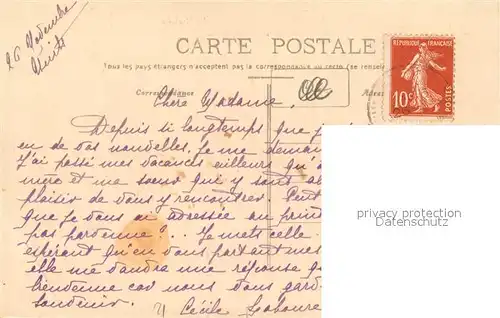 CARTE POSTALE
Tous les pays étrangers n'acceptent pas la correspondance au recto (se renseigner
Correspondance
Adre
RÉPUBLIQUE FRANÇAISE
10c
POSTES
Chère Madame,
Depuis si longtemps que j
en de vos nouvelles, je me deman
J'ai passé mes vacances ailleurs qu'à
mère et ma soeur qui y sont al
plaisir de vous y rencontrer. Peut
que je vous ai adressée au prin
pas parvenue ?.. Je mets celle
espérant qu'en vous portant mes
elle me vaudra une réponse q
bienvenue car nous vous gard
souvenir.
Cécile
privacy protection
Datenschutz